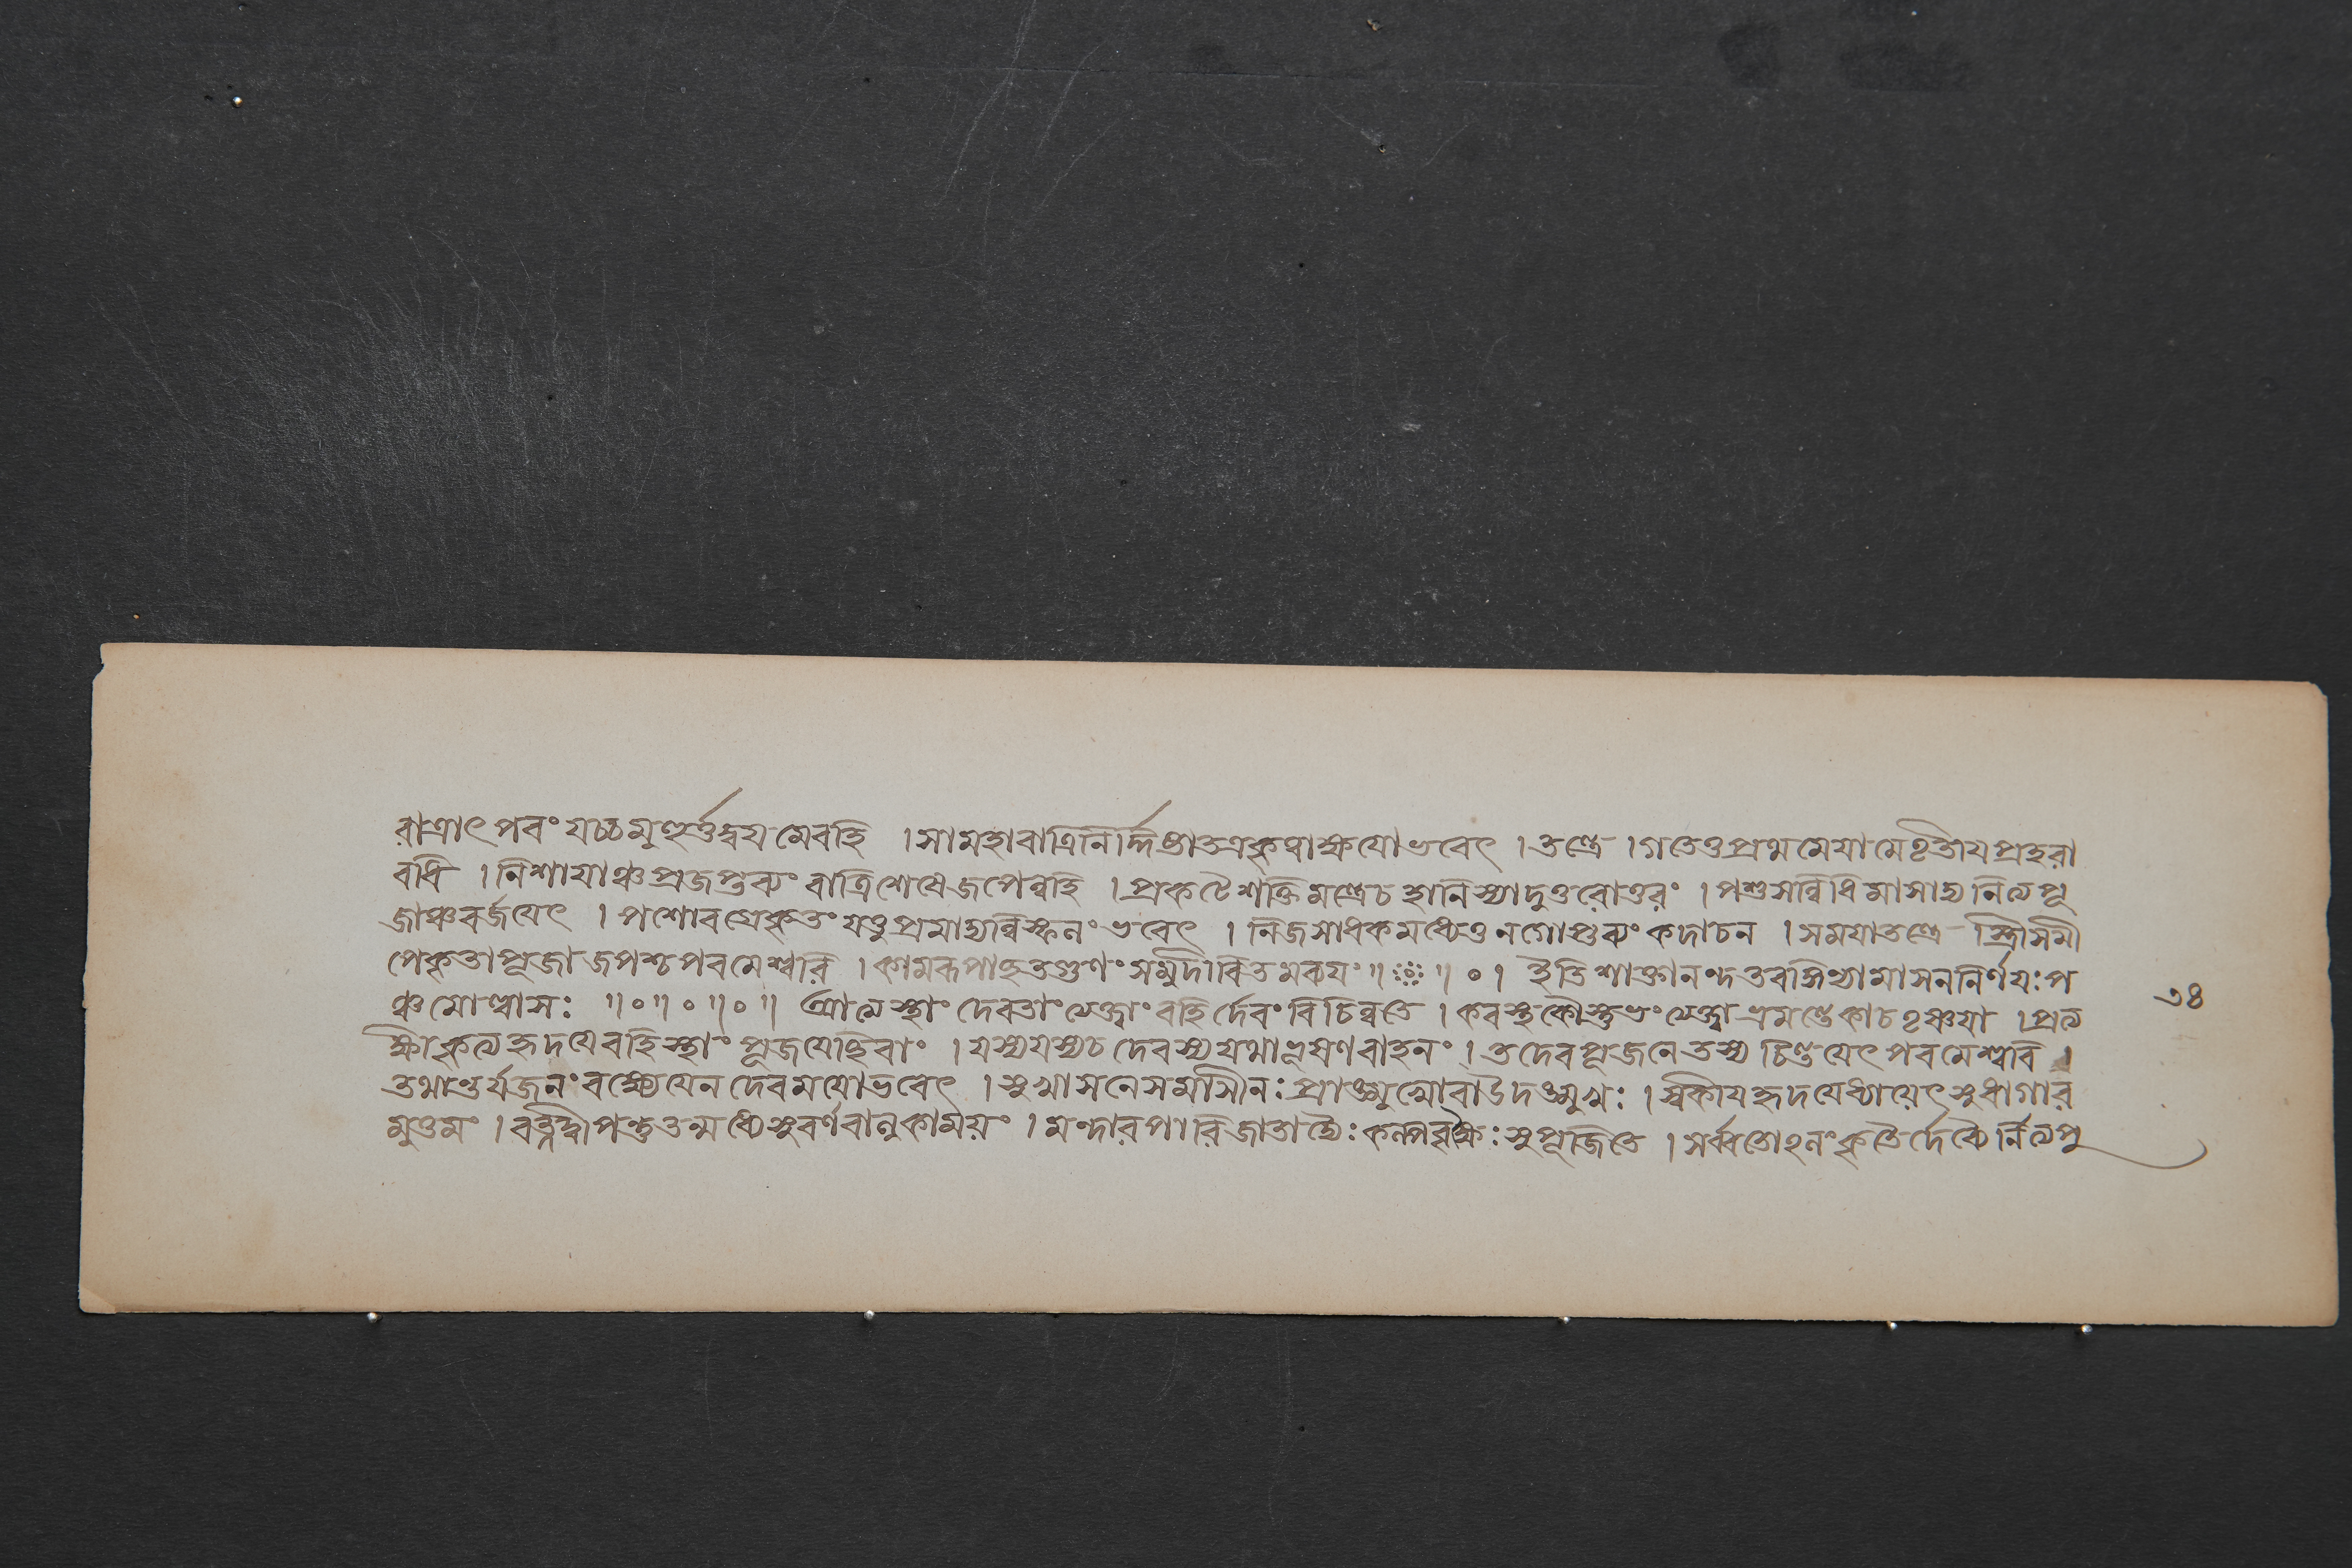 রাত্রাৎ পরং যচ্চ মুহূর্ত্তদ্বয়মেবহি । সা মহারাত্রির্নিদ্দিষ্টা তত্র কৃত্বাক্ষয়ো ভবেৎ । তন্ত্রে । গতে তু প্রথমে যামে তৃতীয়প্রহরা
বধি । নিশায়াঞ্চ প্রজপ্তব্যং রাত্রিশেষে জপেন্নহি । প্রকটে শক্তিমন্ত্রে চ হানি স্যাদুত্তরোত্তরং । পশুসন্নিধিমাসাদ্য নিত্যপূ
জাঞ্চ বর্জয়েৎ । পশোরগ্রে কৃতং যত্তু প্রমাদ্যন্নিস্ফলং ভবেৎ । নিজসাধকমধ্যে তু ন গোপ্তব্যং কদাচন । সময়াতন্ত্রে স্ত্রীসমী
পে কৃতা পূজা জপশ্চ পরমেশ্বরি । কামরূপাচ্ছতগুণং সমুদীরিতমব্যয়ং ॥ ॥ ০ । ইতি শাক্তানন্দতরঙ্গিণ্যামাসননির্ণয়ঃ প
ঞ্চমোল্লাসঃ ॥০॥০॥০॥ আত্মস্থাং দেবতাং ত্যক্ত্বাং বহির্দেবং বিচিন্বতে । করস্থকৌস্তুভং ত্যক্ত্বা ভ্রমন্তে কাচতৃষ্ণয়া । প্রত্য
ক্ষীকৃত্য হৃদয়ে বহিস্থাং পূজয়েচ্ছিবাং । যস্য যস্য চ দেবস্য যথা ভূষণবাহনং । তদেব পূজনে তস্য চিন্তয়েৎ পরমেশ্বরি ।
তথান্তর্যজনং বক্ষ্যে যেন দেবময়ো ভবেৎ । সুখাসনে সমাসীনঃ প্রাঙ্মুখো বা উদঙ্মুখঃ । স্বকীয়হৃদয়ে ধ্যায়েৎ সুধাগার
মুত্তমং । রত্নদ্বীপন্তু তন্মধ্যে সুবর্ণবালুকাময়ং । মন্দারপারিজাতাদ্যৈঃ কল্পবৃক্ষৈঃ সুপূজিতে । সর্ব্বতোঽলংকৃতৈর্দেব্যৈর্নিত্যপু
৩৪